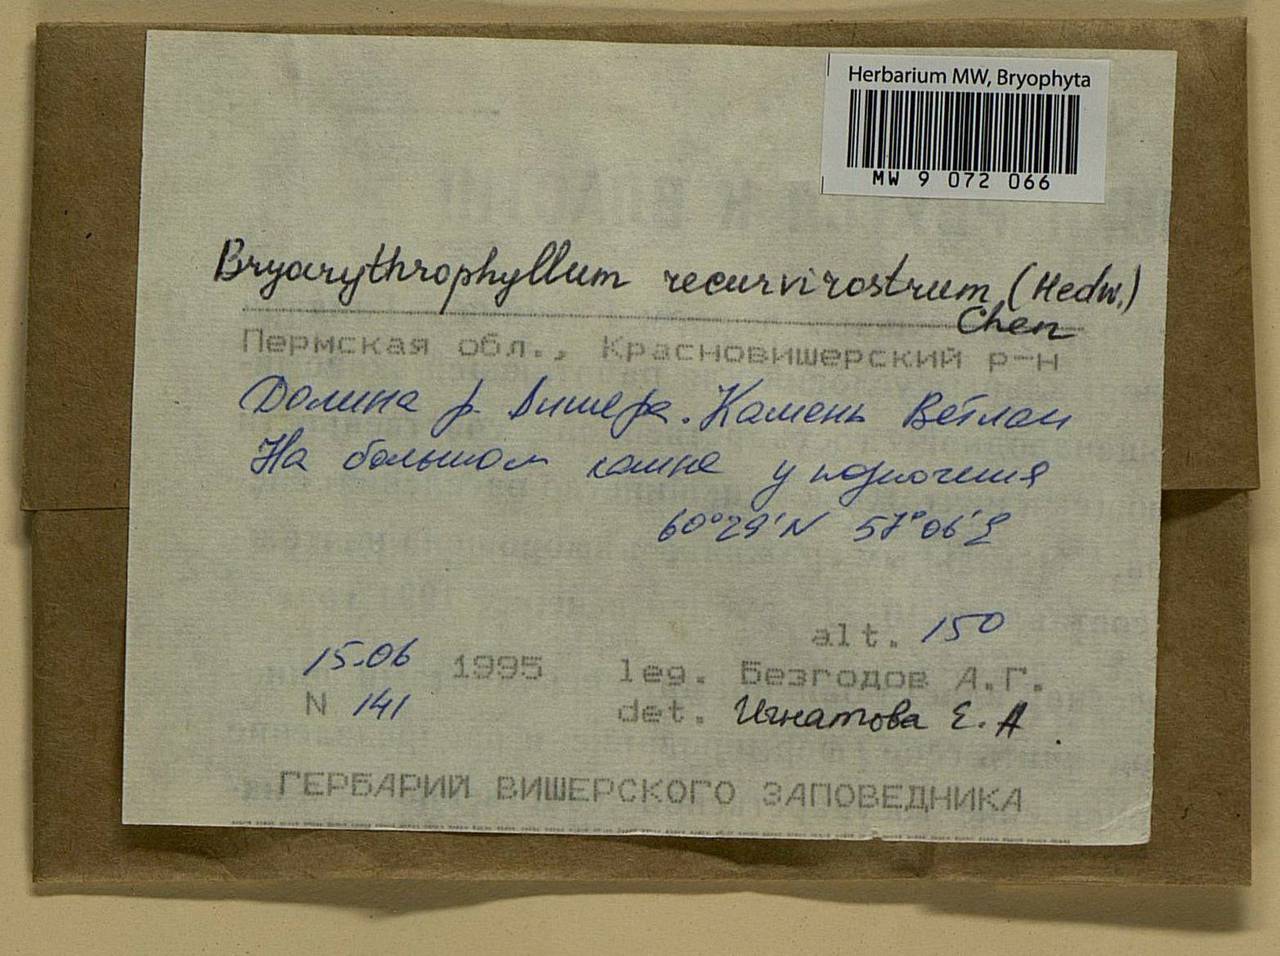 Herbarium MW, Bryophyta
MW 9 072 066
Bryoerythrophyllum recurvirostrum (Hedw.)
Chen
Пермская обл., Красновишерский р-н
Долина р. Вишера. Камень Ветлан
На большом камне у подножия
60°29'N 57°06'E
alt. 150
15.06 1995 leg. Безгодов А.Г.
N 141 det. Игнатова Е.А.
ГЕРБАРИЙ ВИШЕРСКОГО ЗАПОВЕДНИКА